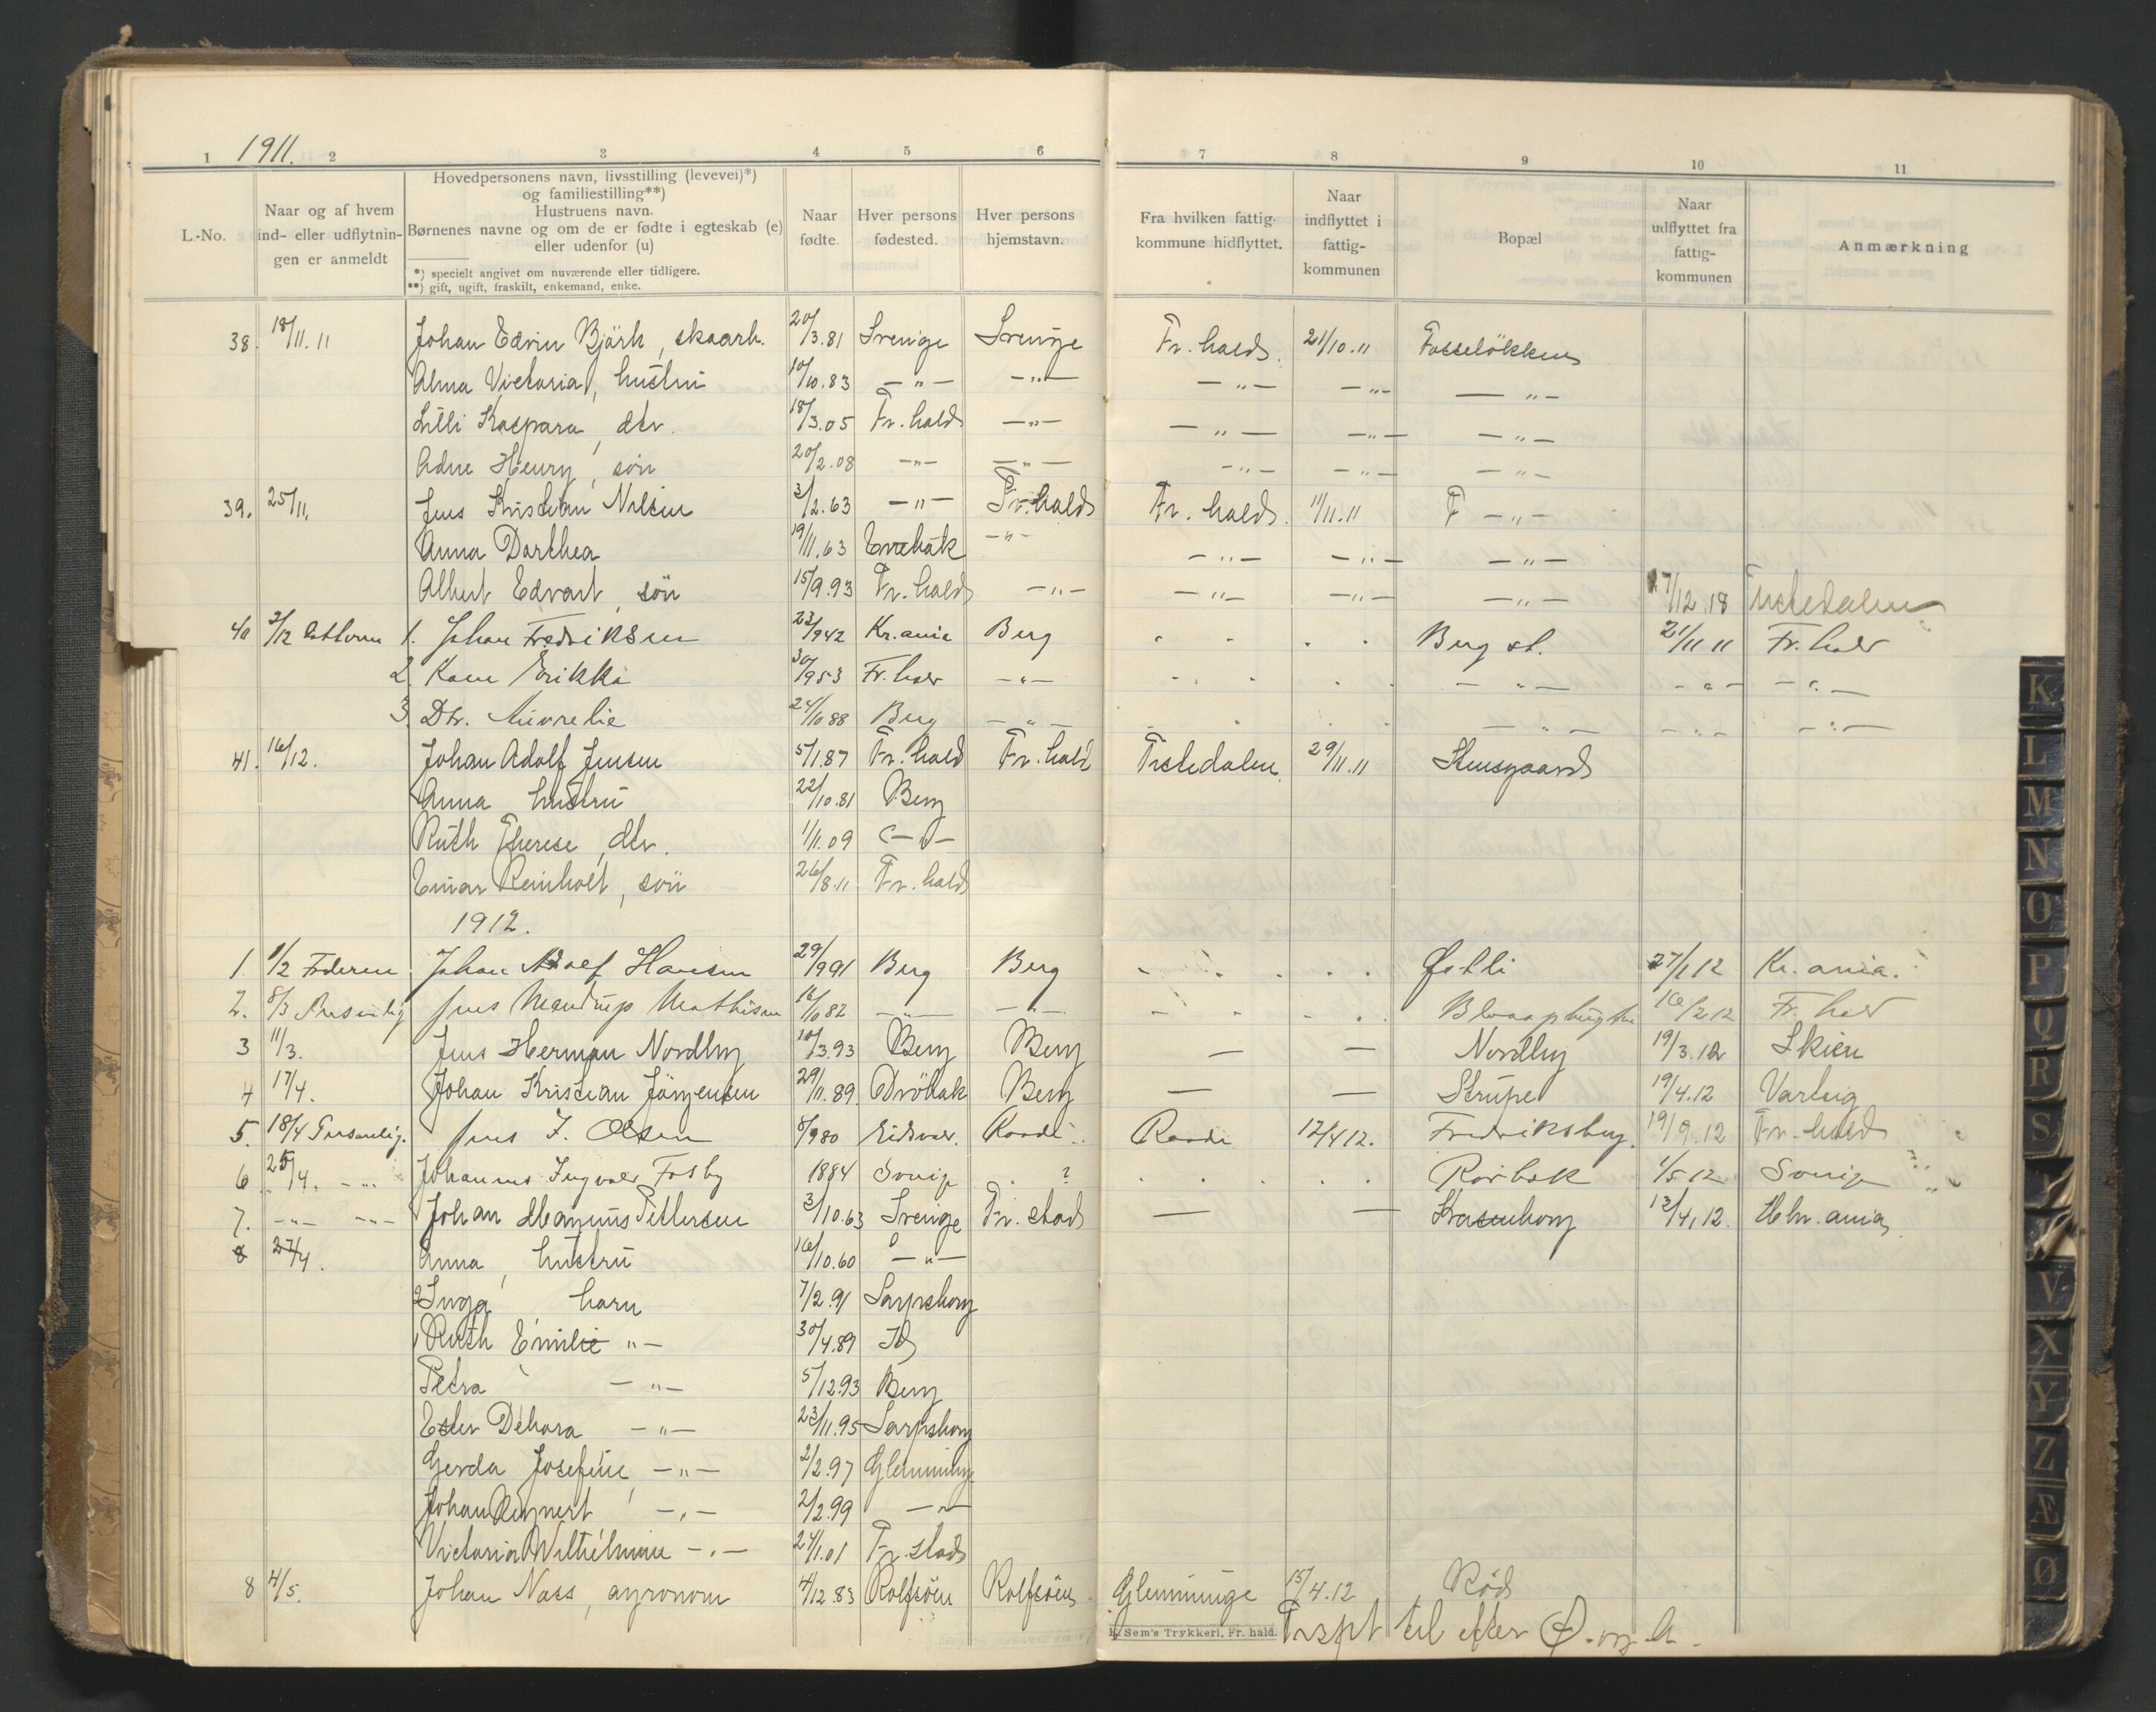 1911.
1 2 3 4 5 6 7 8 9 10 11
L.-No.
Naar og af hvem ind- eller udflytnin- gen er anmeldt
Hovedpersonens navn, livsstilling (levevei)*) og familiestilling**) Hustruens navn. Børnenes navne og om de er fødte i egteskab (e) eller udenfor (u)
*) specielt angivet om nuværende eller tidligere.
**) gift, ugift, fraskilt, enkemand, enke.
Naar fødte.
Hver persons fødested.
Hver persons hjemstavn.
Fra hvilken fattig- kommune hidflyttet.
Naar indflyttet i fattig- kommunen
Bopæl
Naar udflyttet fra fattig- kommunen
Anmærkning
38. 18/11.11 Johan Edvin Björk, skoarb. 20/3.81 Sverige Sverige Fr. hald. 21/10.11 Fosseløkken
Alma Victoria, hustru 10/10.83 —"— —"— —"— —"— —"—
Lilli Kaspara, dtr. 18/3.05 Fr. hald —"— —"— —"— —"—
Adne Henry, sön 20/2.08 —"— —"— —"— —"— —"—
39. 25/11. Jens Kristian Nilsen 3/2.63 —"— Fr. hald Fr. hald. 11/11.11 F —"—
Anna Dorthea 19/11.63 Enebak —"— —"— —"— —"—
Albert Edvart, sön 15/9.93 Fr. hald —"— —"— —"— —"— 7/12.18 Tistedalen
40 2/12 1. Johan Fredriksen 23/9 42 Kr.ania Berg Berg st. 21/11 11 Fr. hald
2. Karen Erikka 30/9 53 Fr. hald —"— —"— —"— —"—
3. Dtr. Aurelie 24/10 88 Berg —"— —"— —"— —"—
41. 16/12. Johan Adolf Jensen 5/1.87 Fr. hald Fr. hald Tistedalen. 29/11.11 Stensgaard
Anna hustru 22/10.81 Berg
Ruth Therese, dtr. 1/11.09 —"—
Einar Reinholt, sön 26/8.11 Fr. hald
1912.
1. 1/2 Faderen Johan Adolf Hansen 29/9 91 Berg Berg Østli 27/1 12 Kr. ania.
2. 8/3 Personlig Jens Mandrup Mathisen 16/10 82 —"— —"— 16/2 12 Fr. hald
3 11/3. Jens Herman Nordby 10/3.93 Berg Berg — — Nordby 19/3.12 Skien
4 17/4. Johan Kristian Jörgensen 29/11.89. Dröbak Berg — — Strupe 19/4.12 Varteig
5. 18/4 Personlig. Jens J. Olsen 8/9 80 Eidsvol. Raade. Raade 12/4 12. Fredriksberg. 19/9.12 Fr. hald
6 25/4. —"— Johannes Ingvald Fosby 1884 Sverige ? Rørbæk 1/5 12 Sverige
7. —"— —"— Johan Magnus Pettersen 3/10.63 Sverige Fr. stad — — Krasenborg 13/4.12. Kr. ania.
8 27/4. Anna, hustru 16/10.60 —"—
2 Inga barn 7/2.91 Sarpsborg
1 Ruth Emilie "— 30/4.89 Id
Petra —"— 5/12.93 Berg
Ester Debora —"— 23/11.95 Sarpsborg
Gerda Josefine, —"— 2/2.97 Glemminge
Johan Reynert —"— 2/2.99 —"—
Victoria Wilhelmine —"— 24/1.01 Fr. stad
8 4/5. Johan Nass, agronom 4/12.83 Rolfsöen Rolfsöen Glemminge 15/4.12 Röd
E. Sem's Trykkeri, Fr. hald.
Trspt til efter Ø. og A.
K
L
M
N
O
P
Q
R
S
V
X
Y
Z
Æ
Ø